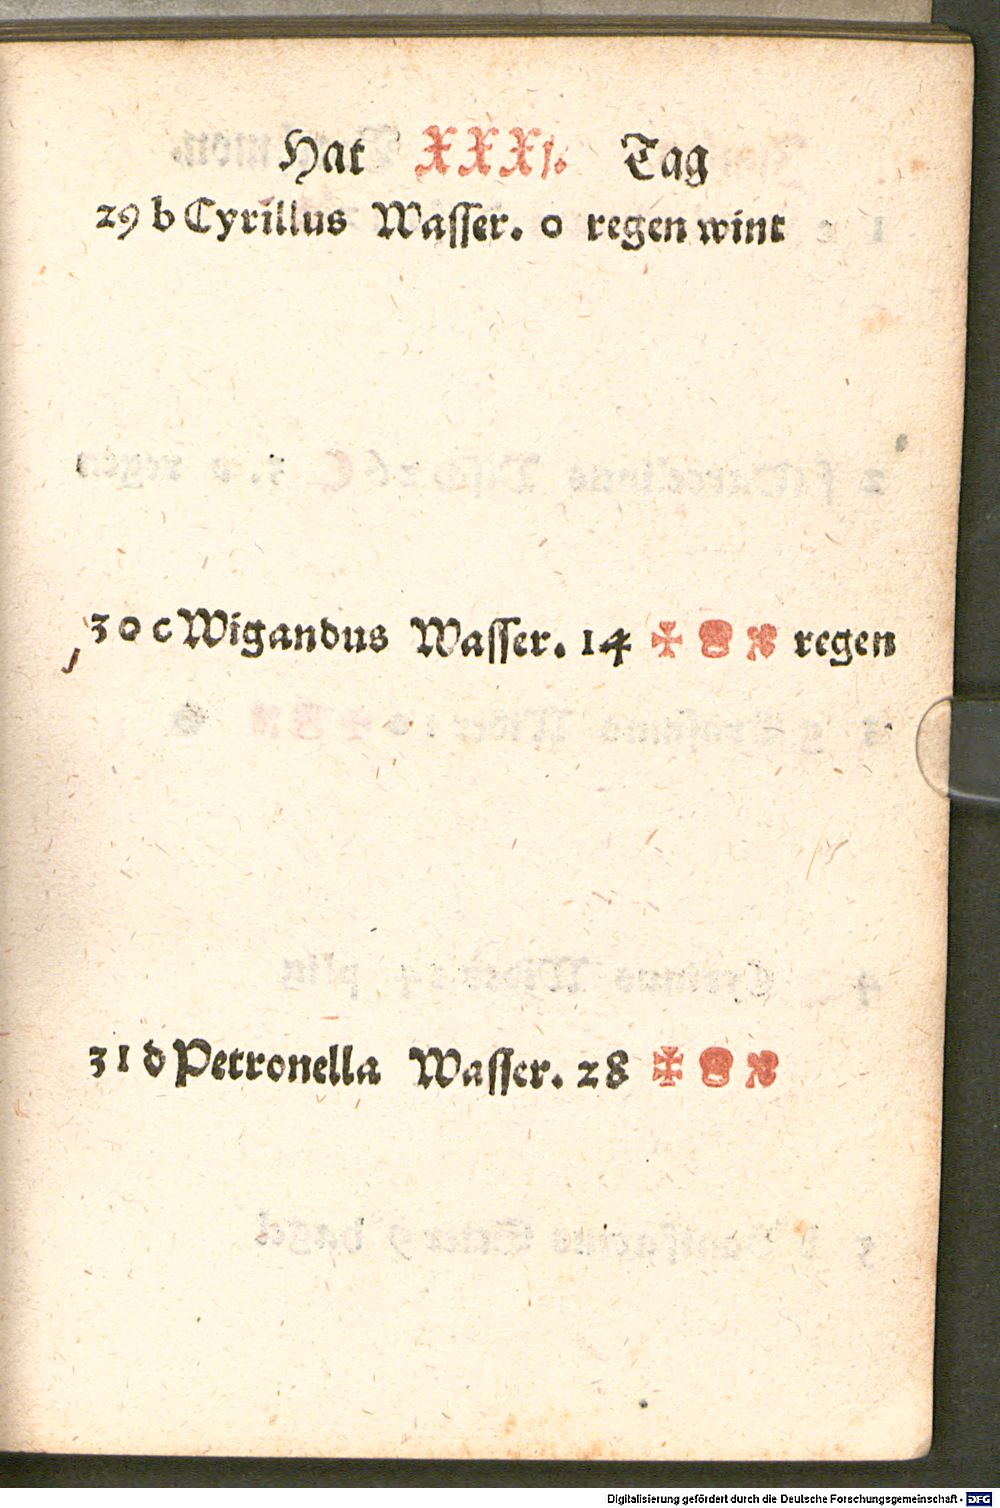 Hat XXXj. Tag
29 b Cyrillus Wasser. 0 regen wint
30 c Wigandus Wasser. 14 ✠ regen
31 d Petronella Wasser. 28 ✠
Digitalisierung gefördert durch die Deutsche Forschungsgemeinschaft - DFG